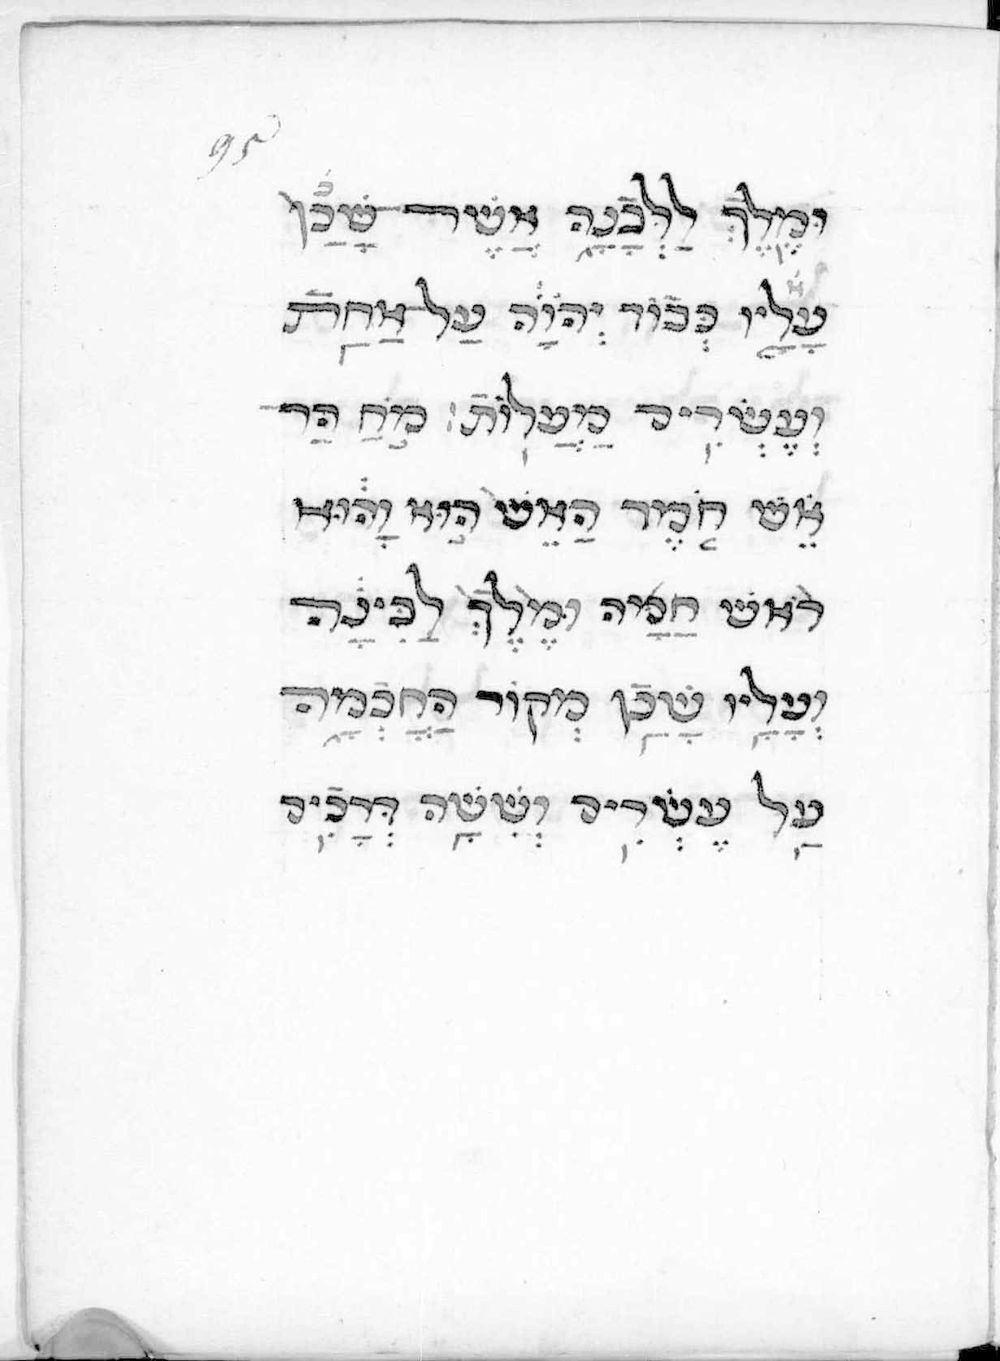 95
וּמֶלֶךְ לַלְּבָנָה אֲשֶׁר שָׁכַן
עָלָיו כְּבוֹד יְהֹוָה עַל אַחַת
וְעֶשְׂרִים מַעֲלוֹת׃ מֹחַ הַר
אֵשׁ חֹמֶר הָאֵשׁ הוּא וָהוּא
רֹאשׁ חַמָּה וּמֶלֶךְ לַבִּינָה
וְעָלָיו שָׁכַן מְקוֹר הַחָכְמָה
עַל עֶשְׂרִים וְשִׁשָּׁה דְּרָכִים